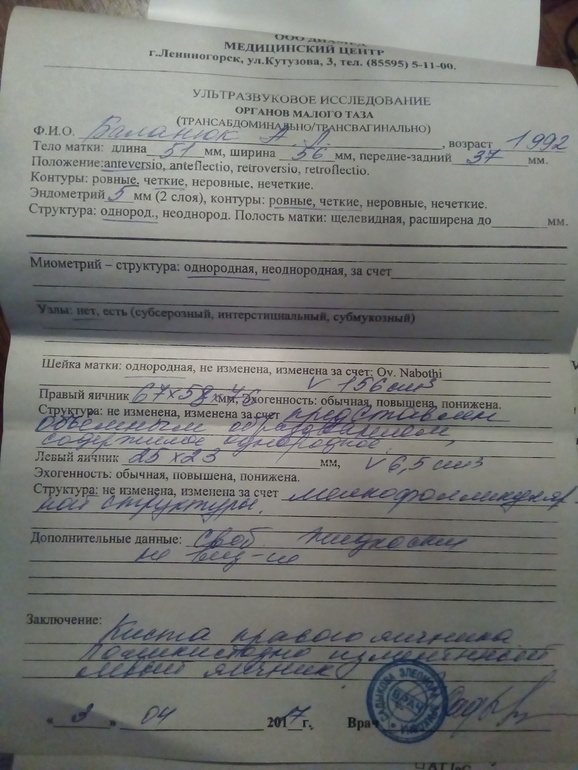 ООО ДИАМЕД
МЕДИЦИНСКИЙ ЦЕНТР
г.Лениногорск, ул.Кутузова, 3, тел. (85595) 5-11-00.
УЛЬТРАЗВУКОВОЕ ИССЛЕДОВАНИЕ
ОРГАНОВ МАЛОГО ТАЗА
(ТРАНСАБДОМИНАЛЬНО/ТРАНСВАГИНАЛЬНО)
Ф.И.О. Баланюк А. , возраст 1992
Тело матки: длина 51 мм, ширина 56 мм, передне-задний 37 мм.
Положение:anteversio, anteflectio, retroversio, retroflectio.
Контуры: ровные, четкие, неровные, нечеткие.
Эндометрий 5 мм (2 слоя), контуры: ровные, четкие, неровные, нечеткие.
Структура: однород., неоднород. Полость матки: щелевидная, расширена до мм.
Миометрий – структура: однородная, неоднородная, за счет
Узлы: нет, есть (субсерозный, интерстициальный, субмукозный)
Шейка матки: однородная, не изменена, изменена за счет: Ov. Nabothi
V 156 cm3
Правый яичник 67х58х76 мм, Эхогенность: обычная, повышена, понижена.
Структура: не изменена, изменена за счет представлен
объемным образованием,
содержимое однородное
Левый яичник 25х23 мм, V 6,5 cm3
Эхогенность: обычная, повышена, понижена.
Структура: не изменена, изменена за счет мелкофолликуляр
ной структуры.
Дополнительные данные: своб жидкости
не виз-ся
Заключение:
Киста правого яичника
Поликистозно измененный
левый яичник
« 3 » 04 2017г. Врач
ВРАЧ